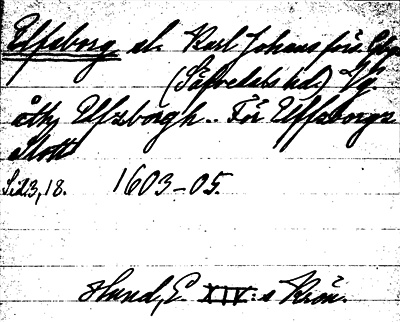 Ulfsborg el. Karl Johans förs. 
(Säfvedals hd.) Vg.
åth Ulfzborgh.. För Ulffzborgz
Slott
Sid. 3, 18. 1603-05.
Hund, E. XIV:s Krön.